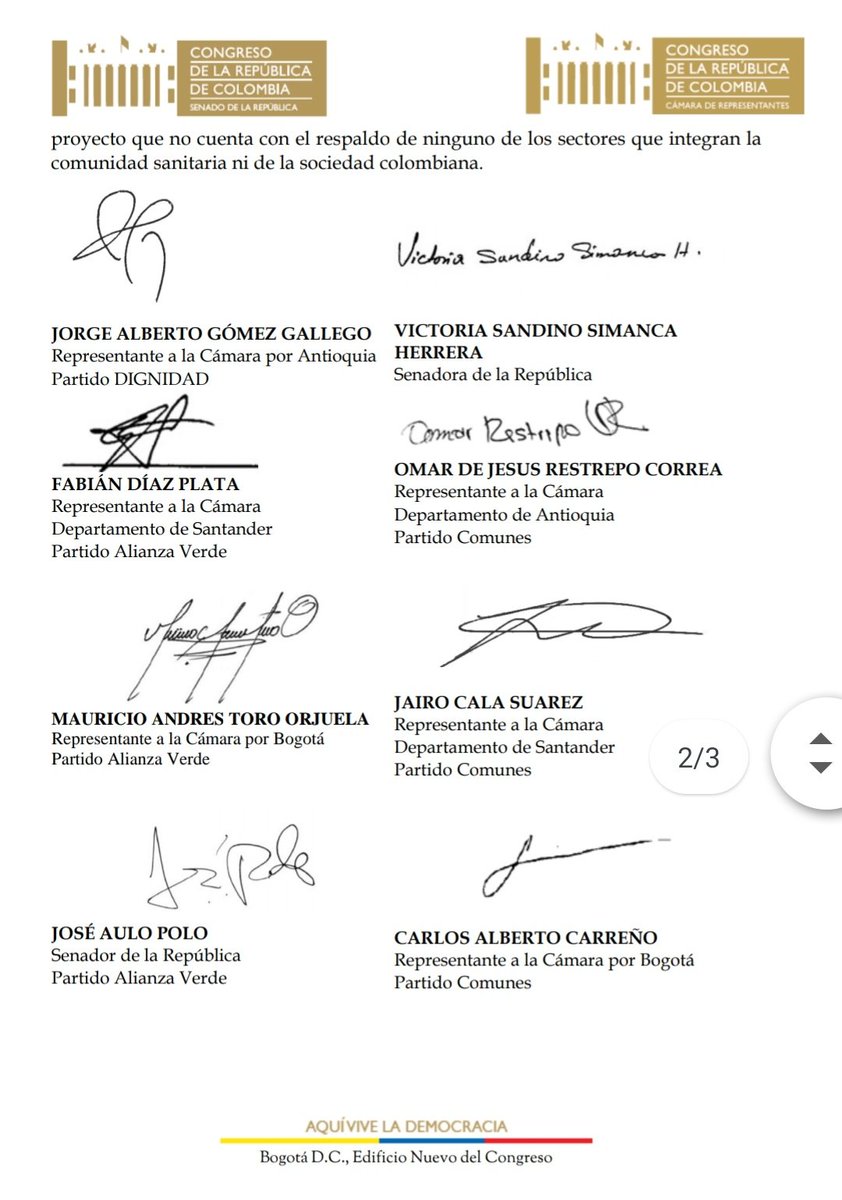 CONGRESO
DE LA REPÚBLICA
DE COLOMBIA
SENADO DE LA REPÚBLICA
CONGRESO
DE LA REPÚBLICA
DE COLOMBIA
CÁMARA DE REPRESENTANTES
proyecto que no cuenta con el respaldo de ninguno de los sectores que integran la
comunidad sanitaria ni de la sociedad colombiana.
Victoria Sandino Simanca H.
JORGE ALBERTO GÓMEZ GALLEGO
Representante a la Cámara por Antioquia
Partido DIGNIDAD
VICTORIA SANDINO SIMANCA
HERRERA
Senadora de la República
Omar Restrepo
FABIÁN DÍAZ PLATA
Representante a la Cámara
Departamento de Santander
Partido Alianza Verde
OMAR DE JESUS RESTREPO CORREA
Representante a la Cámara
Departamento de Antioquia
Partido Comunes
MAURICIO ANDRES TORO ORJUELA
Representante a la Cámara por Bogotá
Partido Alianza Verde
JAIRO CALA SUAREZ
Representante a la Cámara
Departamento de Santander
Partido Comunes
2/3
JOSÉ AULO POLO
Senador de la República
Partido Alianza Verde
CARLOS ALBERTO CARREÑO
Representante a la Cámara por Bogotá
Partido Comunes
AQUÍ VIVE LA DEMOCRACIA
Bogotá D.C., Edificio Nuevo del Congreso